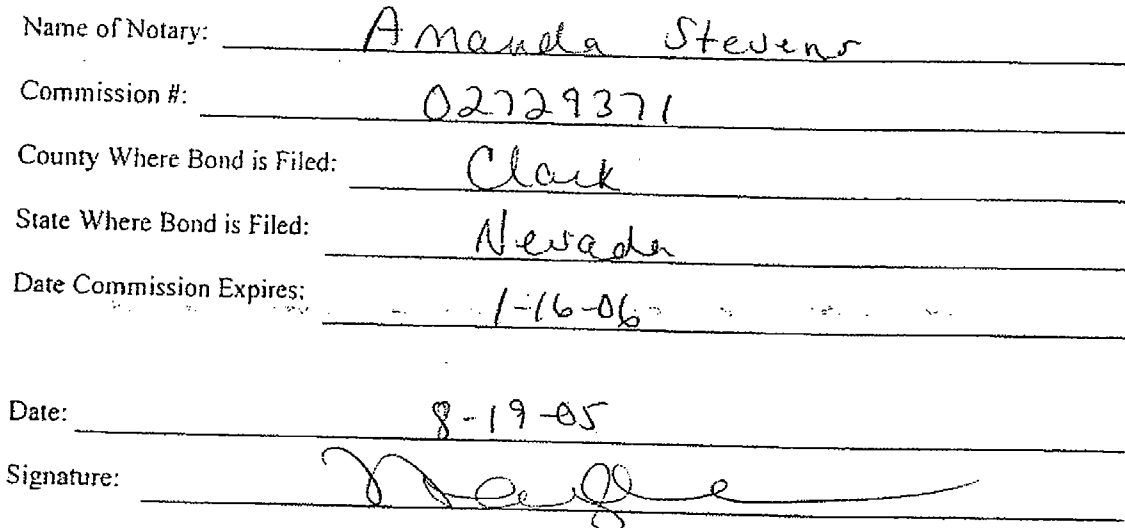 Name of Notary: Amanda Stevens
Commission #: 02729371
County Where Bond is Filed: Clark
State Where Bond is Filed: Nevada
Date Commission Expires: 1-16-06
Date: 8-19-05
Signature: